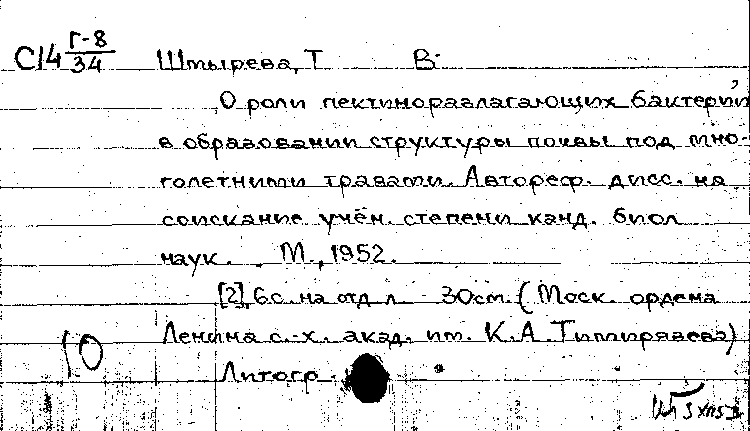 С14 Г-8/34 Штырева, Т В.
О роли пектиноразлагающих бактерий
в образовании структуры почвы под мно-
голетними травами. Автореф. дисс. на
соискание учён. степени канд. биол
наук. М., 1952.
[2], 6с. на отд л 30см. (Моск. ордена
Ленина с.-х. акад. им. К.А. Тимирязева)
10
Литогр.